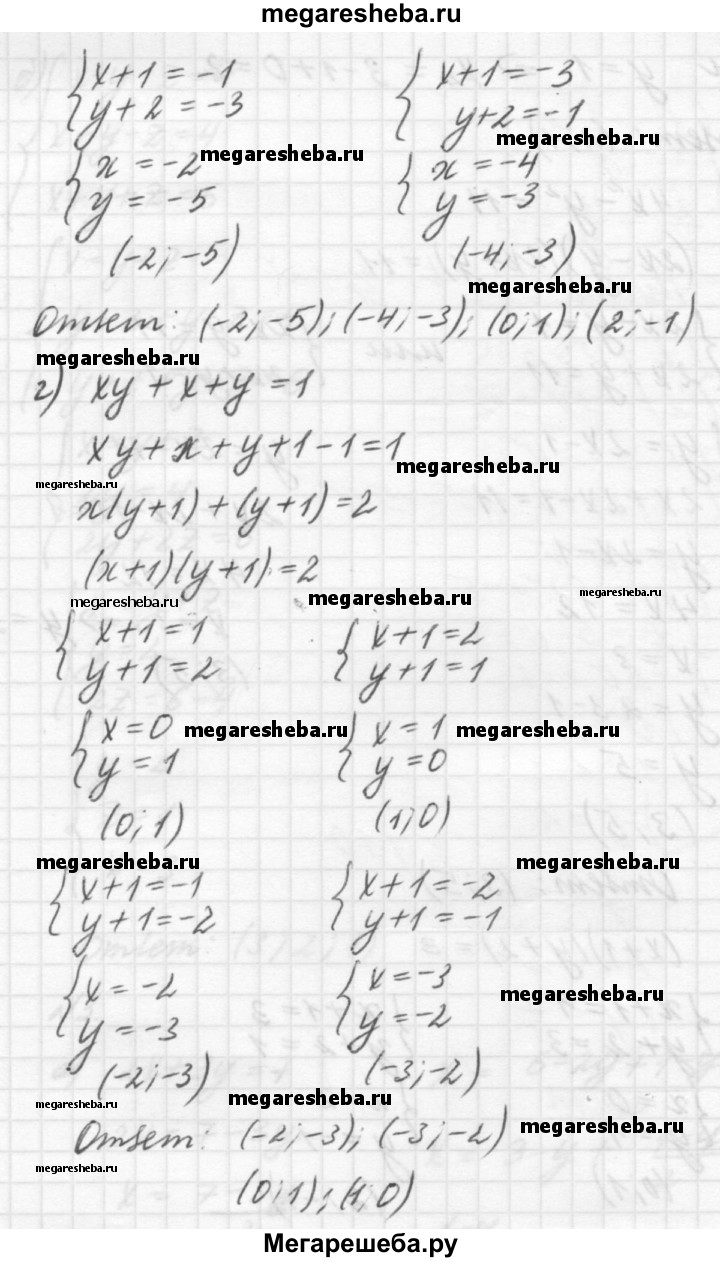 megaresheba.ru
x+1=-1 x+1=-3
y+2=-3 y+2=-1
megaresheba.ru
megaresheba.ru
x=-2 x=-4
y=-5 y=-3
(-2;-5) (-4;-3)
megaresheba.ru
Ответ: (-2;-5); (-4;-3); (0;1); (2;-1)
megaresheba.ru megaresheba.ru
г) xy+x+y=1
xy+x+y+1-1=1
megaresheba.ru
megaresheba.ru
x(y+1)+(y+1)=2
(x+1)(y+1)=2
megaresheba.ru megaresheba.ru megaresheba.ru
x+1=1 x+1=2
y+1=2 y+1=1
x=0 megaresheba.ru x=1 megaresheba.ru
y=1 y=0
(0;1) (1;0)
megaresheba.ru megaresheba.ru
x+1=-1 x+1=-2
y+1=-2 y+1=-1
x=-2 x=-3
megaresheba.ru
y=-3 y=-2
(-2;-3) (-3;-2)
megaresheba.ru megaresheba.ru
Ответ: (-2;-3); (-3;-2)
megaresheba.ru
megaresheba.ru
(0;1); (1;0)
Мегарешеба.ру